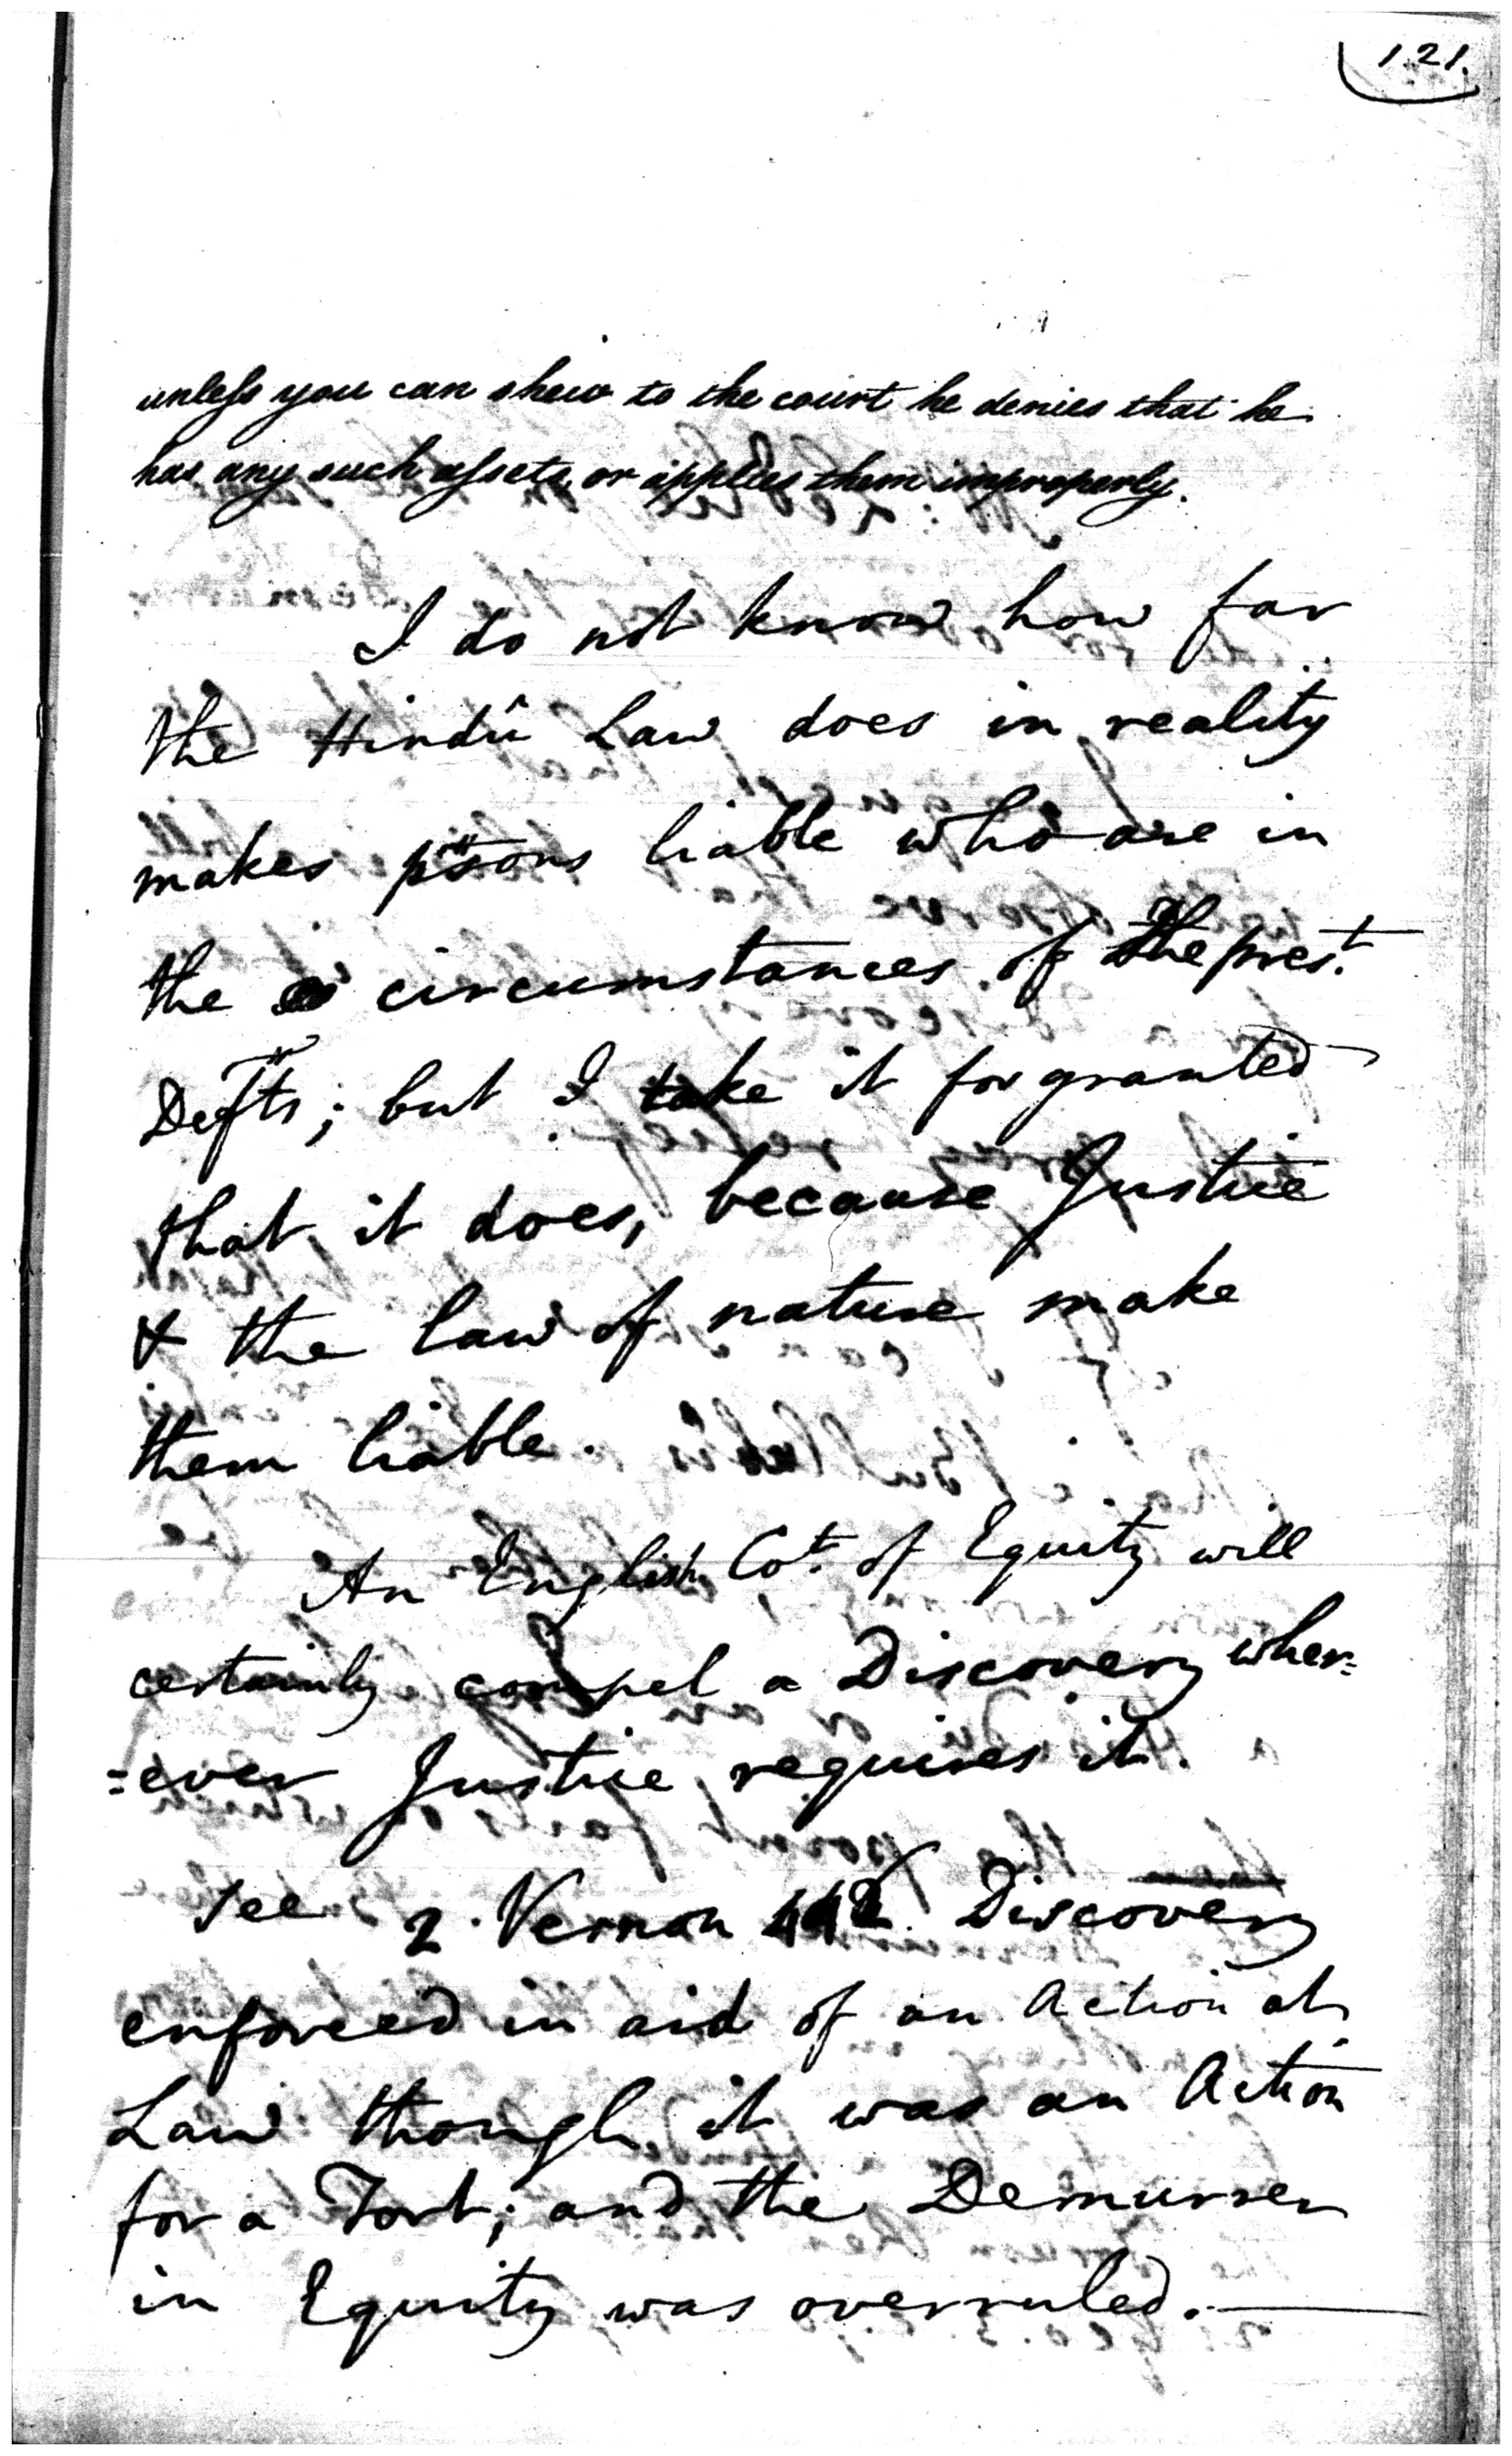 121.
unless you can shew to the court he denies that he
has any such assets, or applies them improperly.
I do not know how far
the Hindû Law does in reality
makes psons liable who are in
the circumstances of the prest.
Defts; but I take it for granted
that it does, because Justice
& the law of nature make
them liable.
An English Cot. of Equity will
certainly compel a Discovery wher=
=ever Justice requires it.
See 2 Vernon 442. Discovery
enforced in aid of an Action at
Law though it was an Action
for a Tort; and the Demurrer
in Equity was overruled.